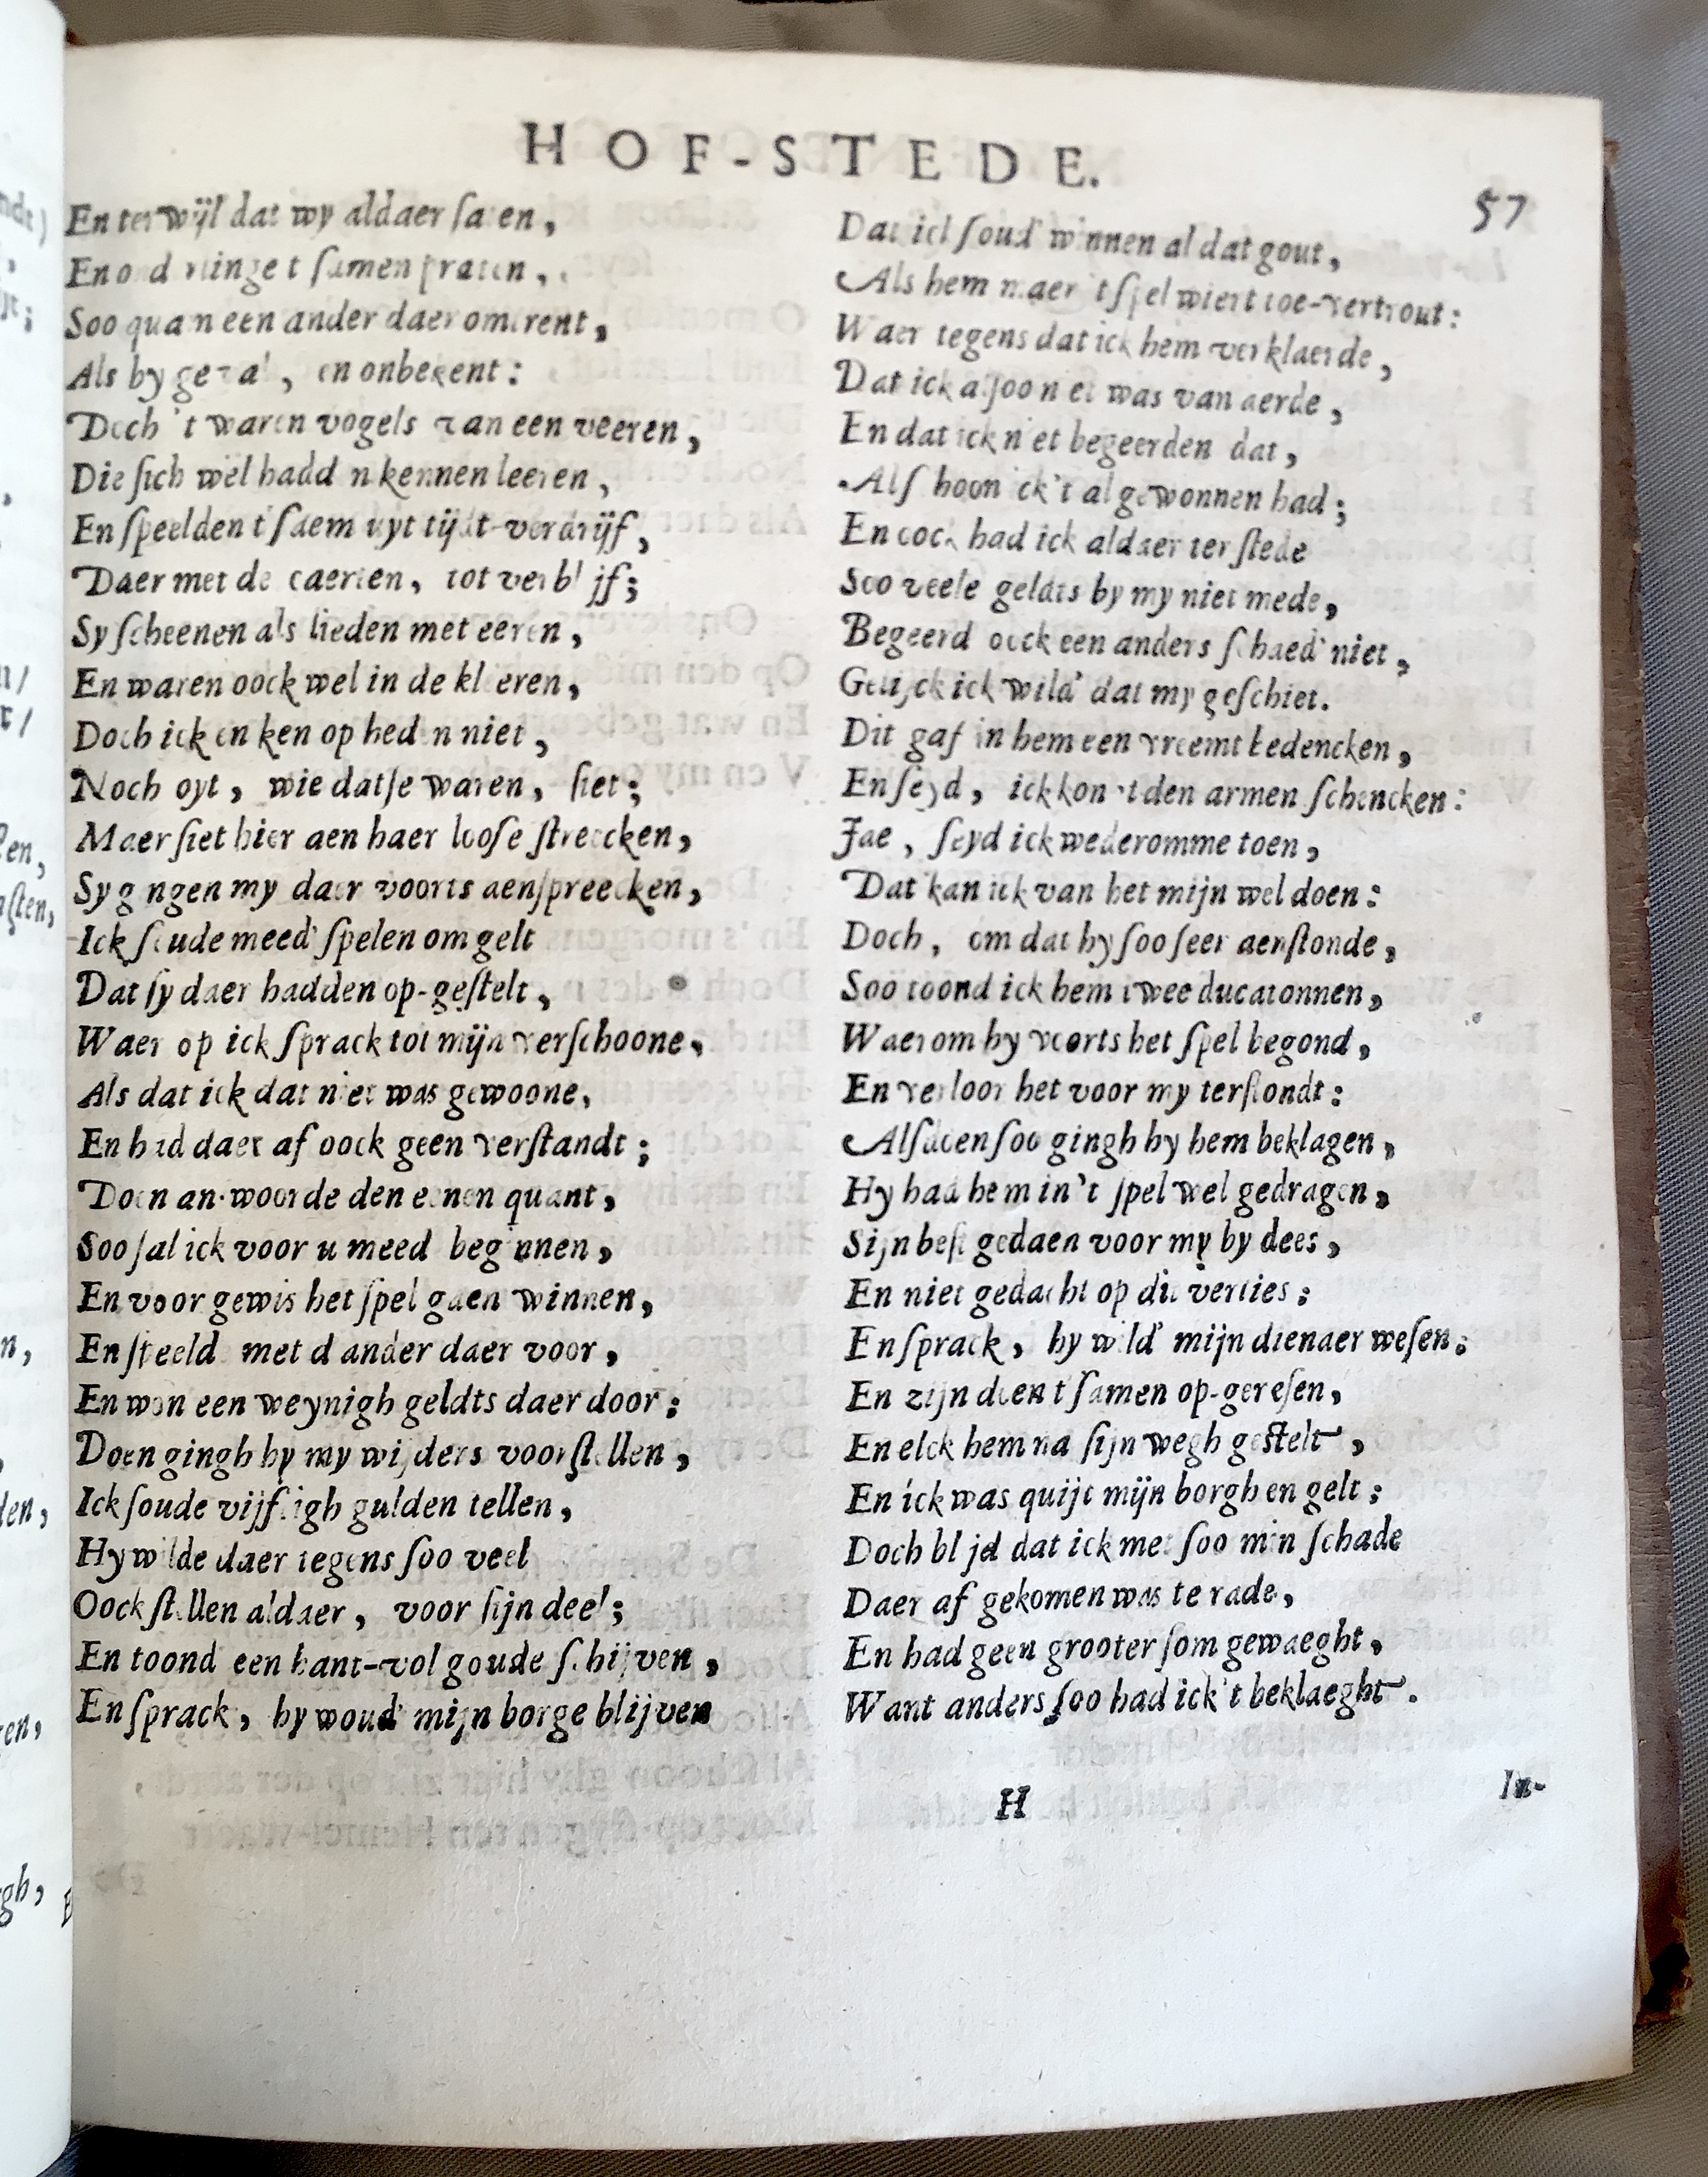 HOF-STEDE.
57
En terwijl dat wy aldaer saten,
En onderlinge t'samen praten,
Soo quam een ander daer omtrent,
Als by geval, en onbekent:
Doch 't waren vogels van een veeren,
Die sich wel hadden kennen leeren,
En speelden t'saem uyt tijdt-verdrijf,
Daer met de caerten, tot verblijf;
Sy scheenen als lieden met eeren,
En waren oock wel in de kleeren,
Doch ick en ken op heden niet,
Noch oyt, wie datse waren, siet;
Maer siet hier aen haer loose streecken,
Sy gingen my daer voorts aenspreecken,
Ick soude meed' spelen om gelt
Dat sy daer hadden op-gestelt,
Waer op ick sprack tot mijn verschoone,
Als dat ick dat niet was gewoone,
En had daer af oock geen verstandt;
Doen antwoorde den eenen quant,
Soo sal ick voor u meed' beginnen,
En voor gewis het spel gaen winnen,
En speeld' met d'ander daer voor,
En won een weynigh geldts daer door;
Doen gingh hy my wijders voorstellen,
Ick soude vijftigh gulden tellen,
Hy wilde daer tegens soo veel
Oock stellen aldaer, voor sijn deel;
En toond een hant-vol goude schijven,
En sprack, hy woud' mijn borge blijven
Dat ick soud' winnen al dat gout,
Als hem maer 't spel wiert toe-vertrout:
Waer tegens dat ick hem verklaerde,
Dat ick alsoo niet was van aerde,
En dat ick niet begeerden dat,
Alschoon ick 't al gewonnen had;
En oock had ick aldaer ter stede
Soo veele geldts by my niet mede,
Begeerd' oock een anders schaed' niet,
Gelijck ick wild' dat my geschiet.
Dit gaf in hem een vreemt bedencken,
En seyd, ick kon 't den armen schencken:
Jae, seyd ick wederomme toen,
Dat kan ick van het mijn wel doen:
Doch, om dat hy soo seer aenstonde,
Soo toond ick hem twee ducatonnen,
Waerom hy voorts het spel begond,
En verloor het voor my terstondt:
Alsdoen soo gingh hy hem beklagen,
Hy had hem in 't spel wel gedragen,
Sijn best gedaen voor my by dees,
En niet gedacht op dit verlies;
En sprack, hy wild' mijn dienaer wesen;
En zijn doen t'samen op-geresen,
En elck hem na sijn wegh gestelt,
En ick was quijt mijn borgh en gelt;
Doch blijd dat ick met soo min schade
Daer af gekomen was te rade,
En had geen grooter som gewaeght,
Want anders soo had ick 't beklaeght.
H
In-